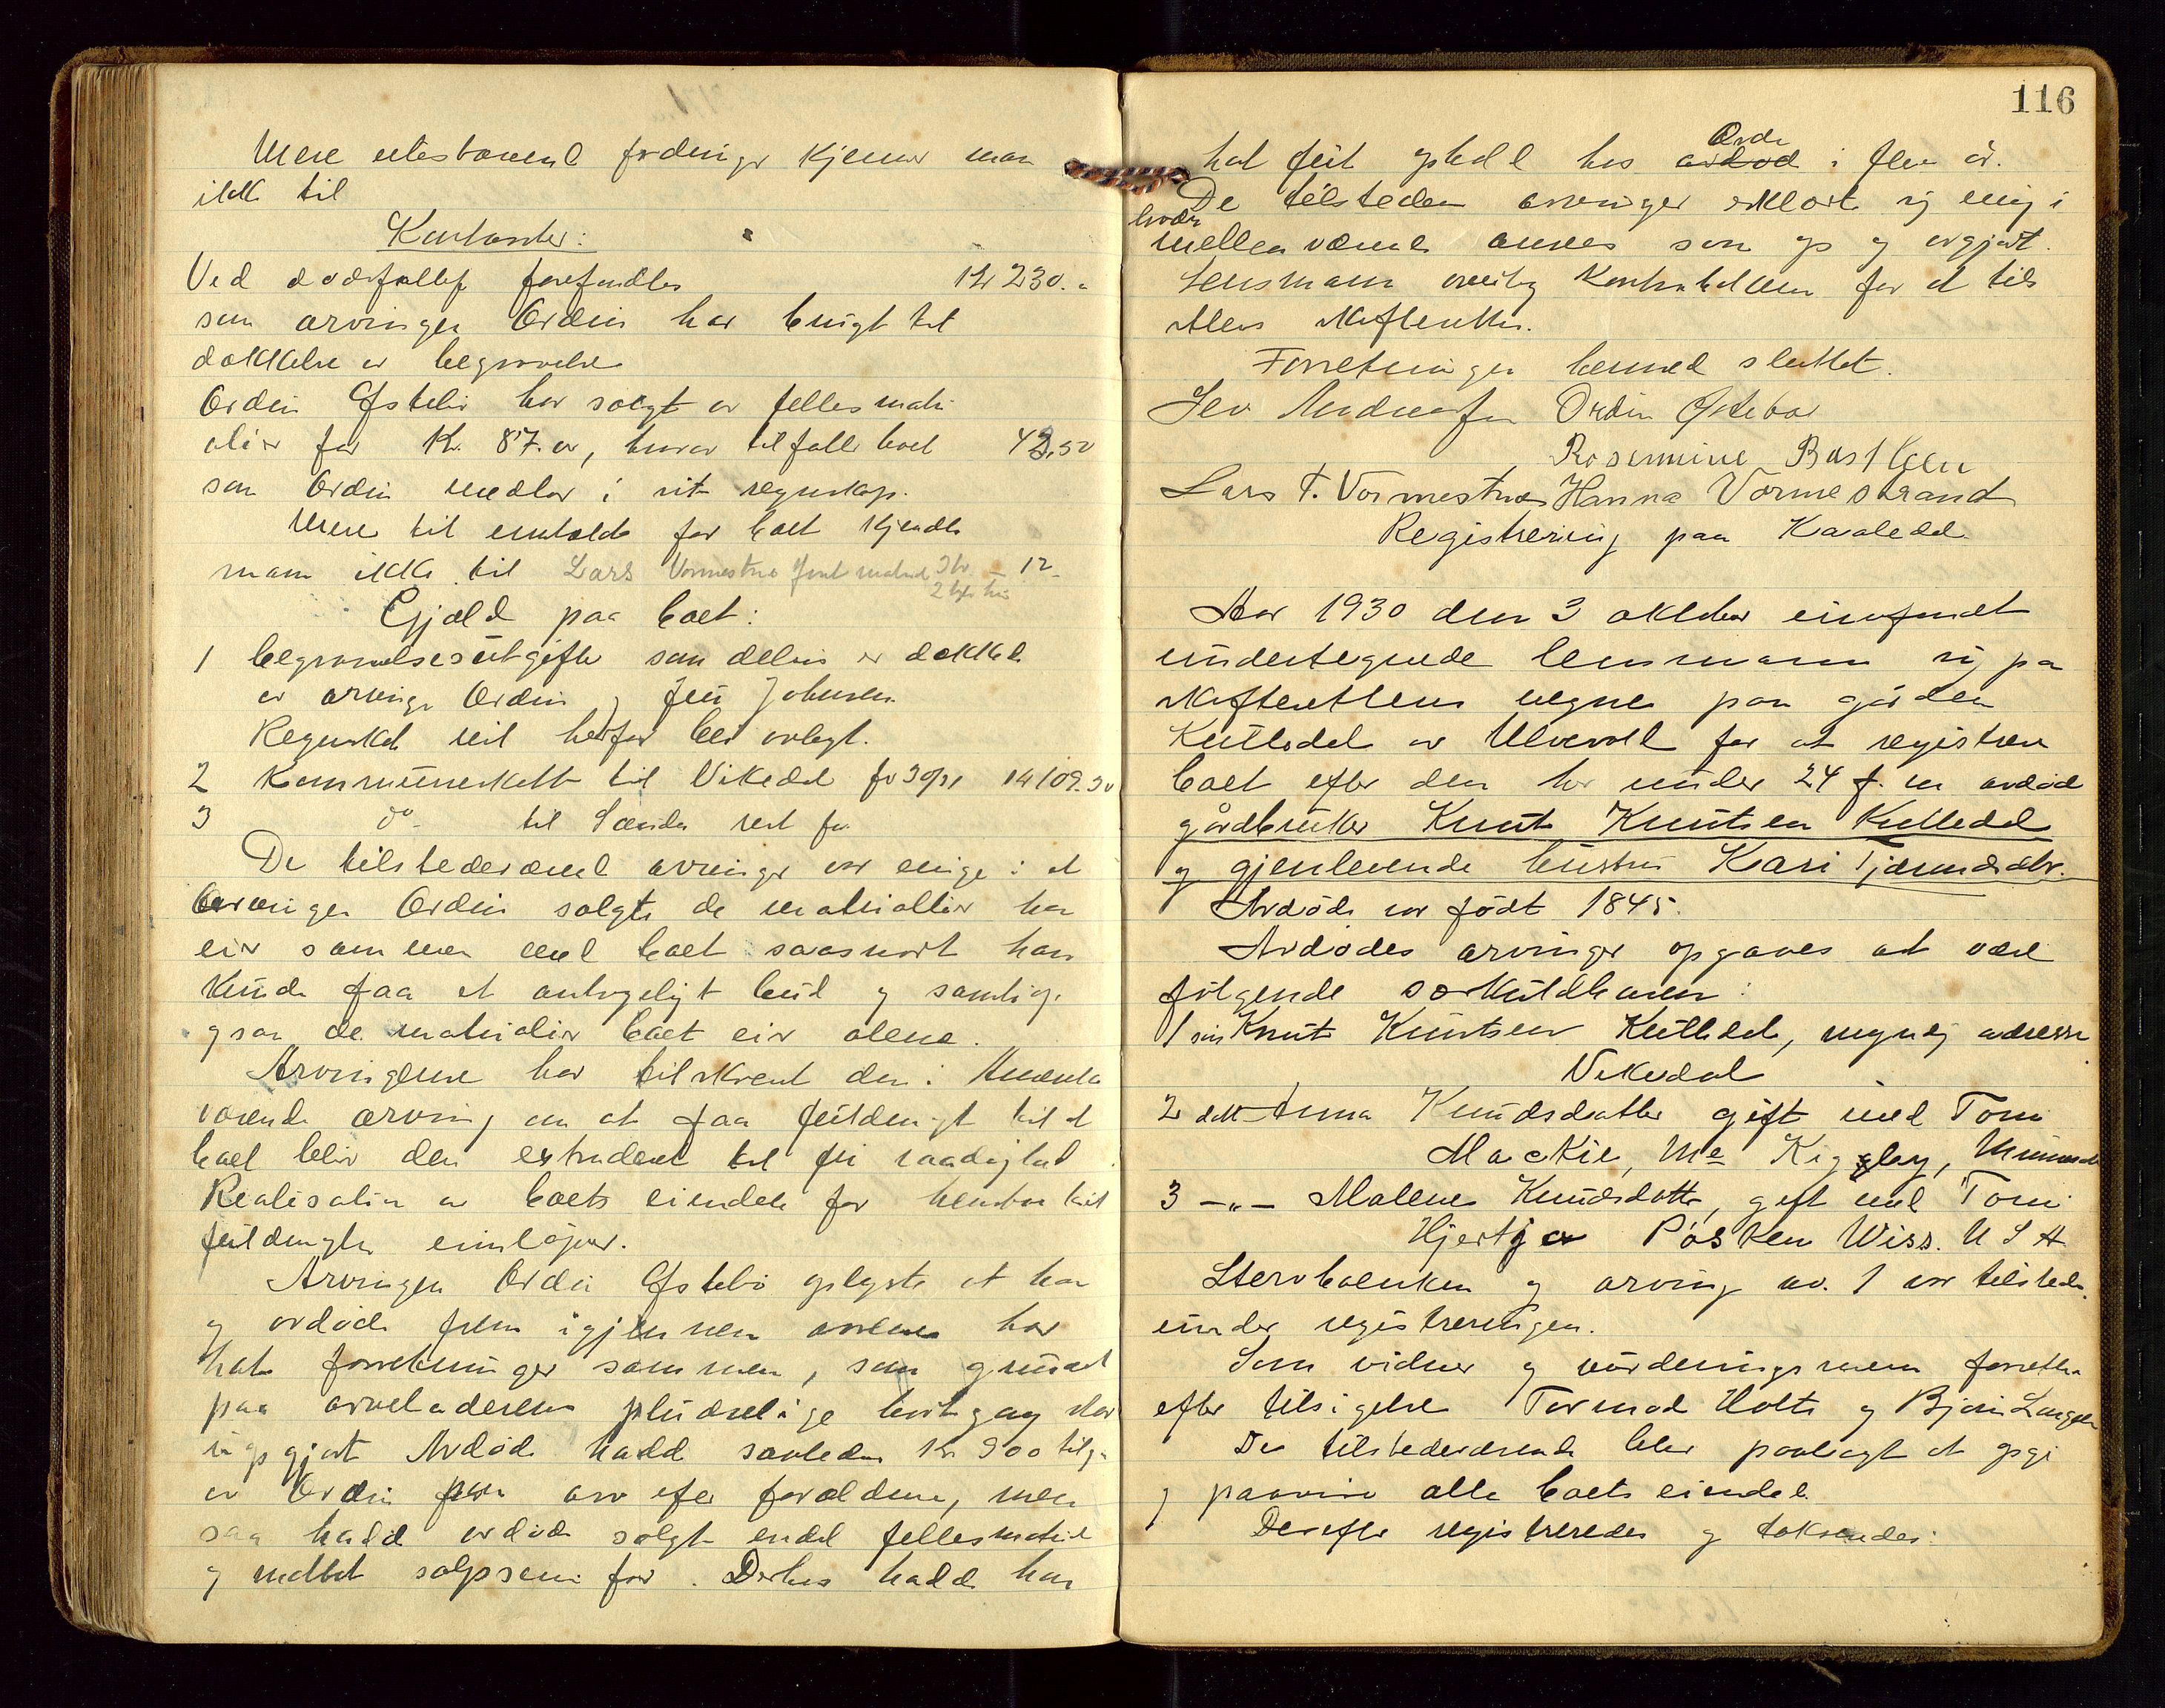 Mere utestaaende fordringer kjenner man
ikke til
Kontanter:
Ved dødsfallet forefandtes Kr 230.-
som arvingen Ordin har brugt til
dækkelse av begravelse
Ordin Østebø har solgt av felles mate
rialier for Kr. 87.00, hvorav tilfalle boet 43.50
som Ordin medtar i sit regnskap.
Mere til indtekt for boet kjendte
man ikke til Lars Vormestrand 12
Gjæld paa boet:
1 begravelsesutgifter som delvis er dækket
av arving Ordin og Johnsen
Regnskap vil herfor bli avlagt.
2 Kommuneskatt til Vikedal for 30/31 109.30
3 do til Sandeid rest for
De tilstedeværende arvinger var enige i at
arvingen Ordin solgte de materialier han
eier sammen med boet saasnart han
kunde faa et antageligt bud og samtidig
ogsaa de materialier boet eier alene.
Arvingene har tilskrevet den i Amerika
værende arving om at faa fuldmagt til at
boet blir dem extraderet til fri raadighet
Realisation av boets eiendele før til
fuldmagten indløper.
Arvingen Ordin Østebø oplyste at han
og avdøde frem igjennem aarene har
hat forretninger sammen, som grundet
paa arveladerens pludselige bortgang staar
uopgjort Avdøde hadde saaledes Kr 900 tilgo
av Ordin arv efter forældrene, men
saa hadde avdøde solgt endel fellesmaterial
og mottat salgssum for. Desuten hadde han
116
hat frit ophold hos avdød Ordin i flere år.
De tilstedeværende arvinger erklært sig enig i
hvorfor
mellemværende ansees som op og avgjort.
Lensmann overtog kontrabøkerne for at til
stilles skifteretten.
Forretningen hermed sluttet.
Sev Andreassen Ordin Østebø
Rosemine Bastlien
Lars T. Vormestrand Hanna Vormestrand
Registrering paa Kvaledal
Aar 1930 den 3 oktober innfandt
undertegnede lensmann sig på
skifterettens vegne paa gården
Kulledal av Ulvevoll for at registrere
boet efter den her under 24 f. m avdøde
gårdbruker Knut Knutsen Kulledal
og gjenlevende hustru Kari Tjerandsdtr.
Avdøde var født 1845.
Avdødes arvinger opgaves at være
følgende særkuldbarn:
1 søn Knut Knutsen Kulledal, myndig adresse
Vikedal
2 datt Anna Knudsdatter gift med Tom
Mackie, Mc Kigley, Minnesota
3 -"- Malene Knudsdatter, gift med Tom
Hjertja Pøsken Wiss. U S A
Stervboenken og arving no. 1 var tilstede
under registreringen.
Som vidner og vurderingsmenn forrettet
efter tilsigelse Tormod Holte og Bjørn Langeen
De tilstedeværende blev paalagt at opgi
og paavise alle boets eiendele
Derefter registreredes og takseredes: